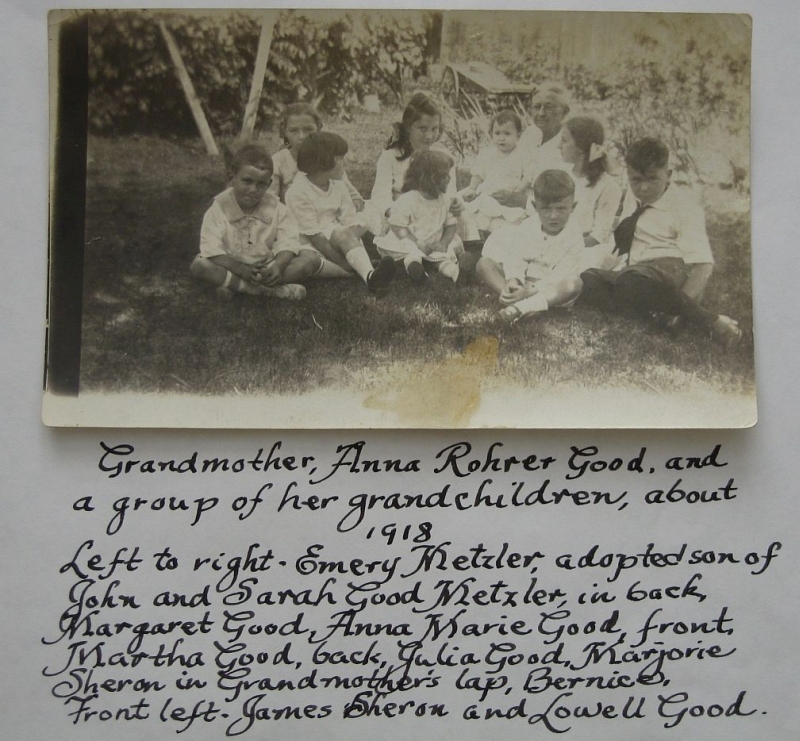 Grandmother, Anna Rohrer Good, and
a group of her grandchildren, about
1918
Left to right - Emery Metzler, adopted son of
John and Sarah Good Metzler, in back,
Margaret Good, Anna Marie Good, front,
Martha Good, back, Julia Good, Marjorie
Sheron in Grandmother's lap, Bernice.
Front left - James Sheron and Lowell Good.